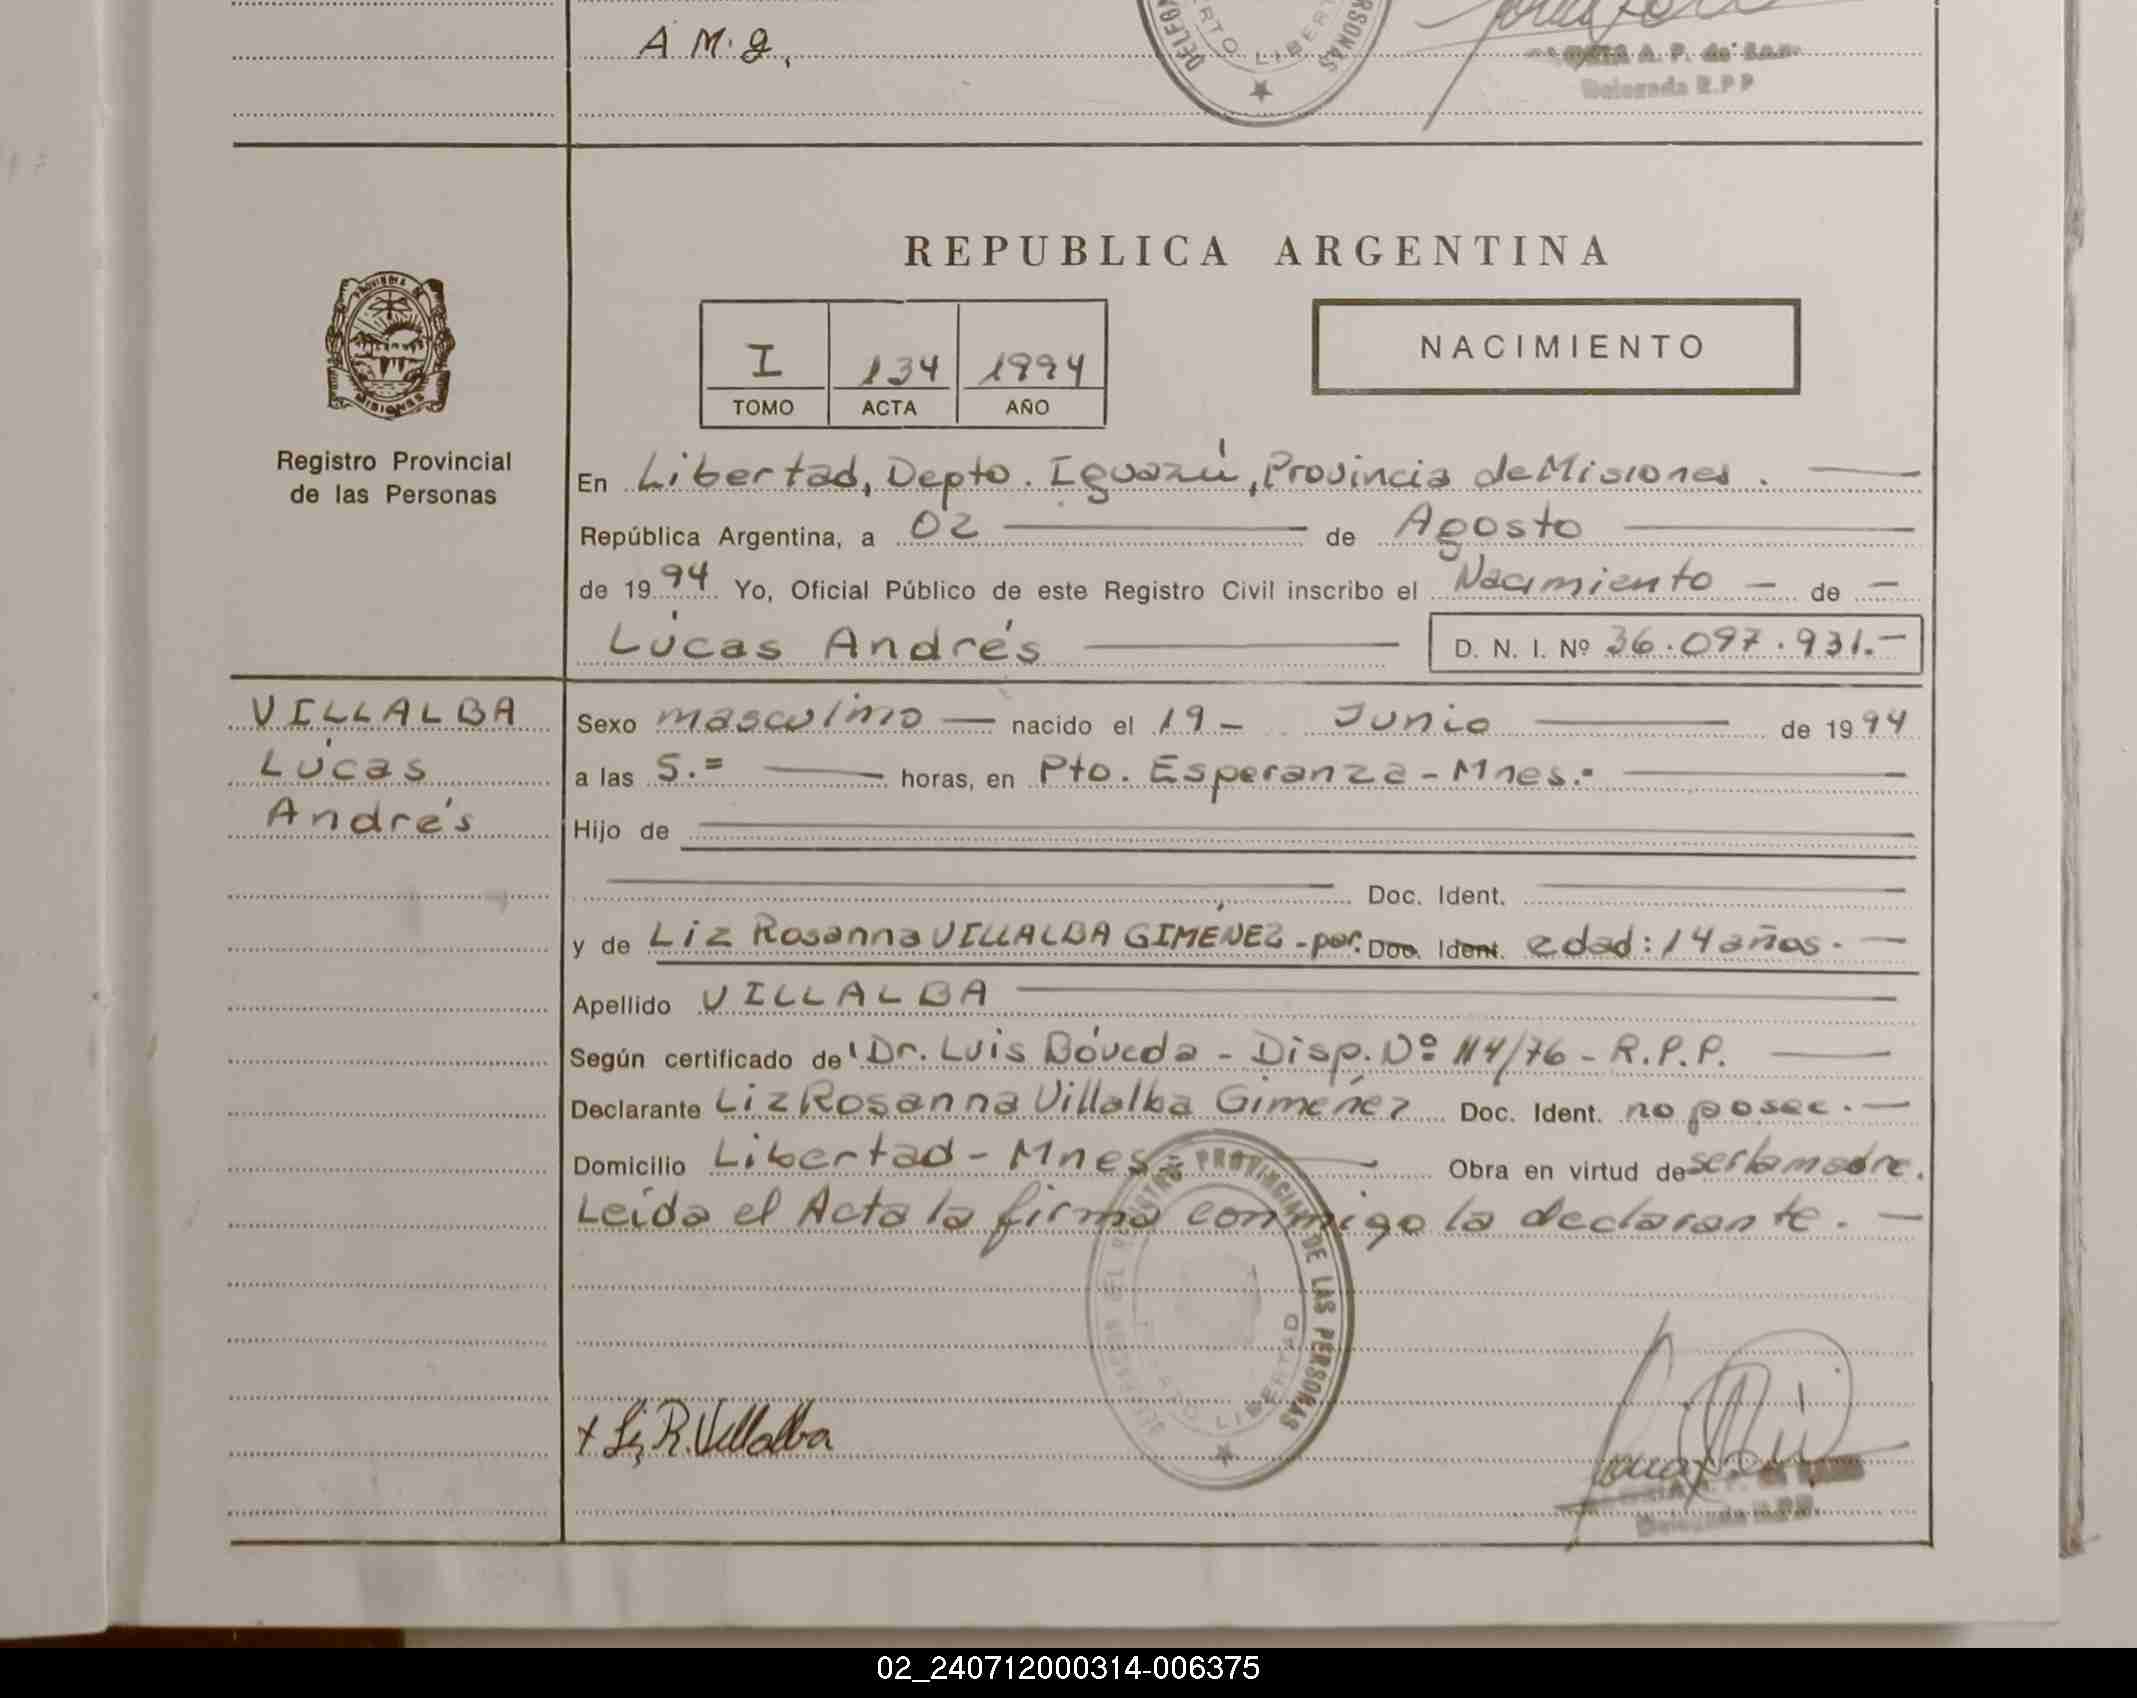 A M. g,
DELEGA
RTO LIBERT
RSONAS
A. P. de
Delegada R.P.P
PROVINCIA DE
MISIONES
Registro Provincial
de las Personas
REPUBLICA ARGENTINA
I 134 1994
TOMO ACTA AÑO
NACIMIENTO
En Libertad, Depto. Iguazú, Provincia de Misiones.
República Argentina, a 02 de Agosto
de 1994 Yo, Oficial Público de este Registro Civil inscribo el Nacimiento - de -
Lúcas Andrés D. N. I. Nº 36.097.931.-
VILLALBA
Lúcas
Andrés
Sexo masculino nacido el 19 - Junio de 1994
a las 5.= horas, en Pto. Esperanza - Mnes.-
Hijo de
Doc. Ident.
y de Liz Rosanna VILLALBA GIMÉNEZ - por. Doc. Ident. edad: 14 años. -
Apellido VILLALBA
Según certificado de Dr. Luis Bóveda - Disp. Nº 114/76 - R.P.P.
Declarante Liz Rosanna Villalba Giménez Doc. Ident. no posee. -
Domicilio Libertad - Mnes.- Obra en virtud de ser la madre.
Leída el Acta la firma conmigo la declarante. -
REGISTRO PROVINCIAL DE LAS PERSONAS
LIBERTAD
+ Liz R. Villalba
Delegada R.P.P.
02_240712000314-006375